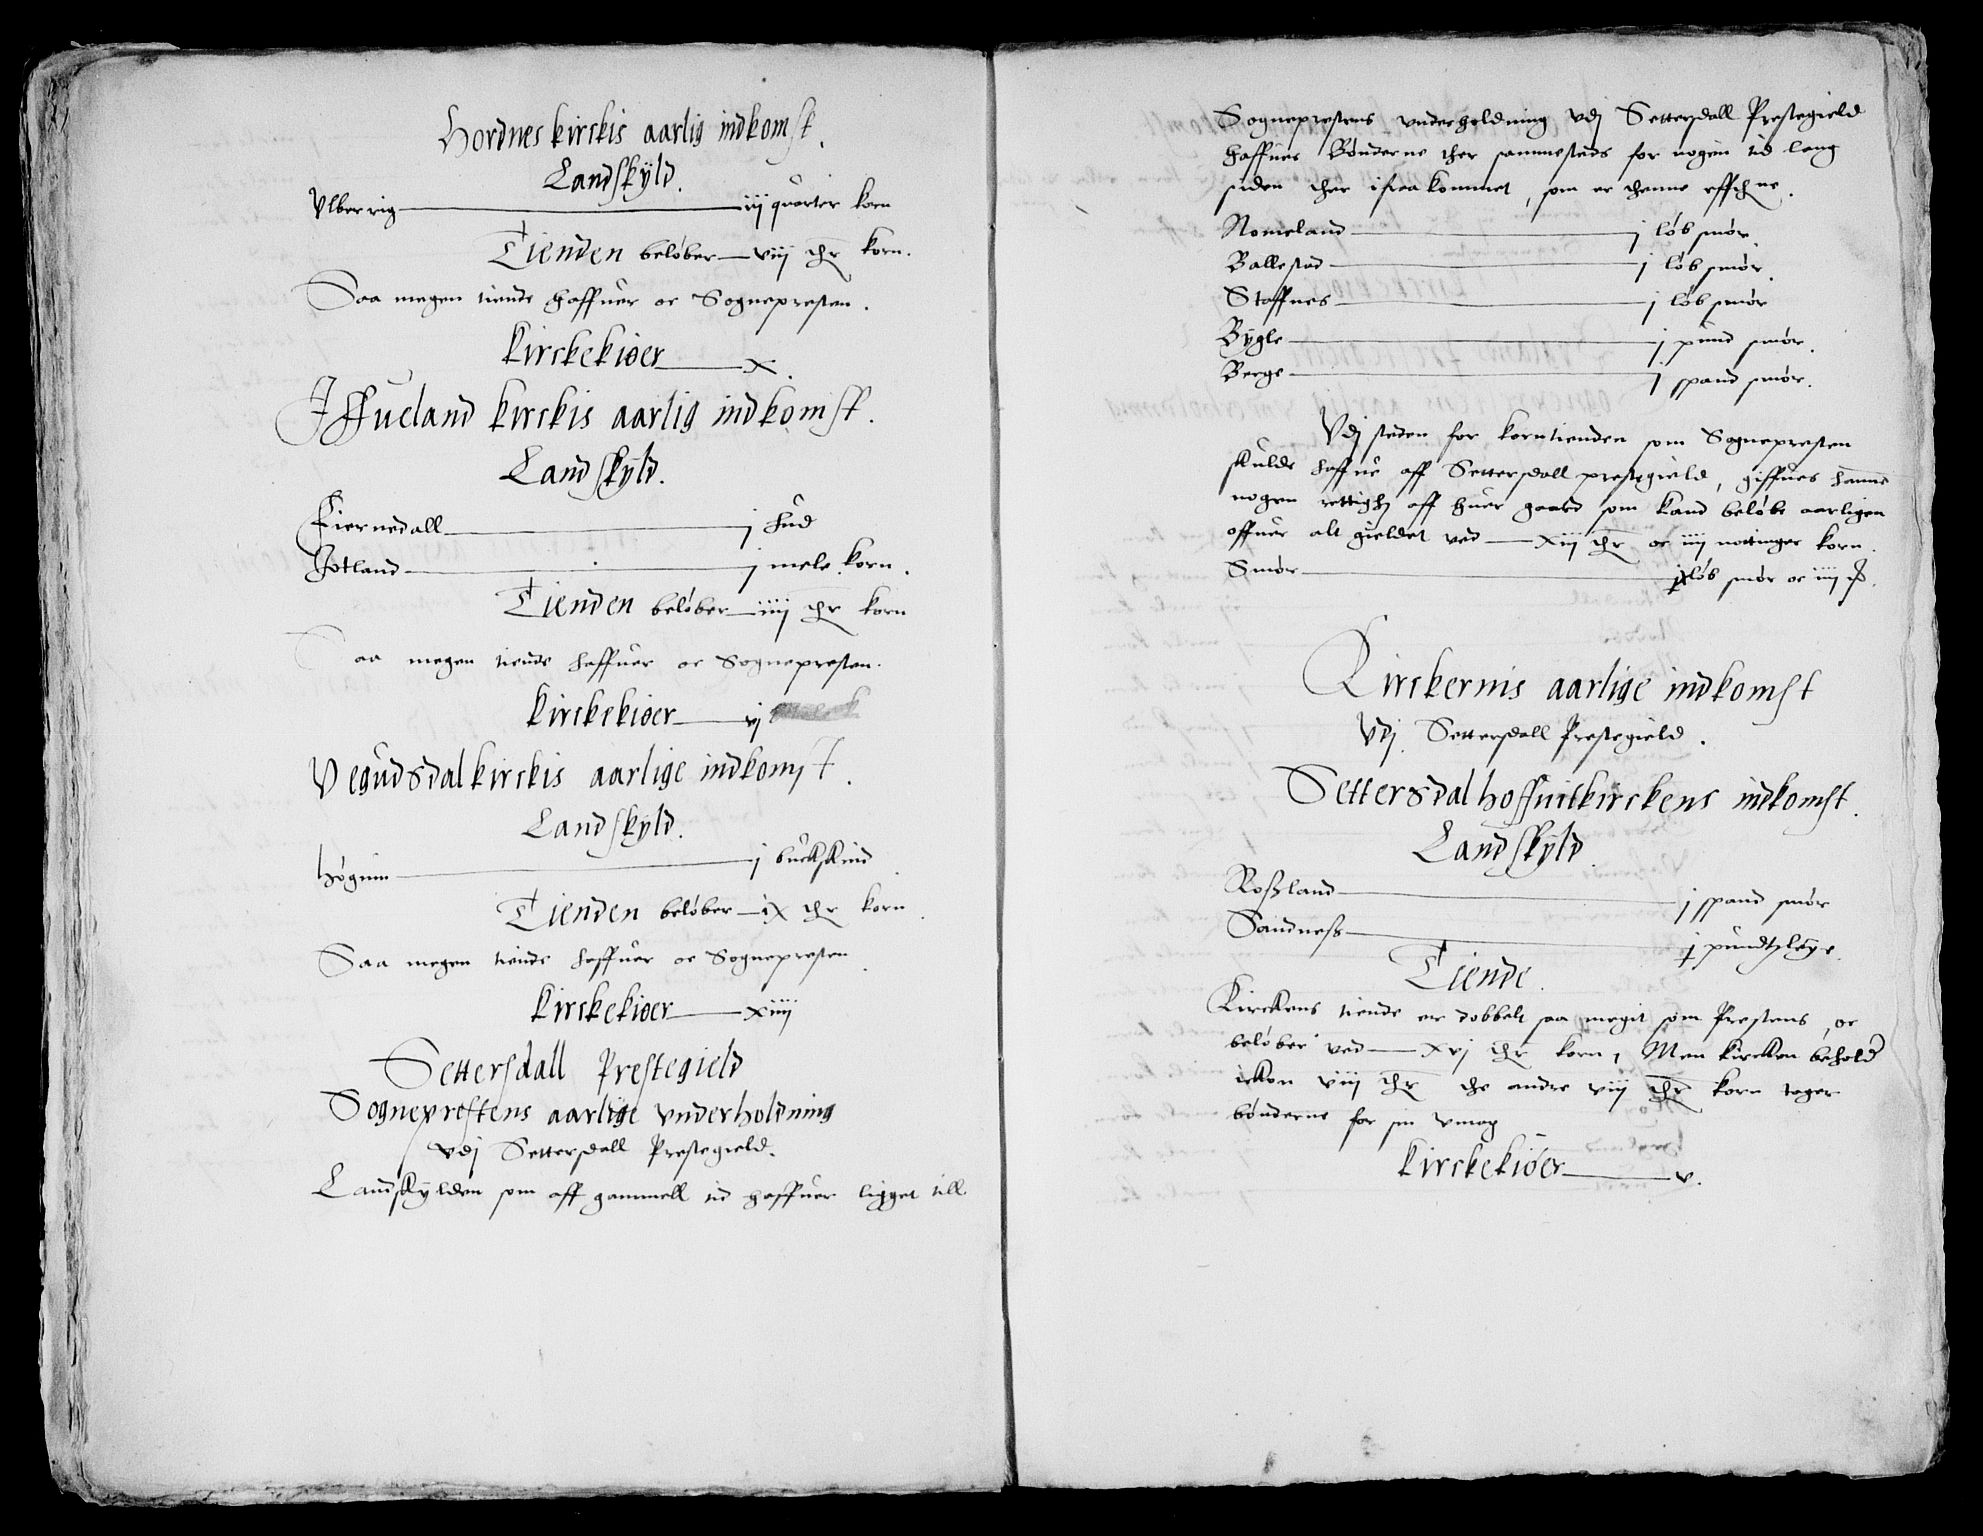 Hordnes kirckis aarlig indkomst.
Landskÿld.
Vlberrig — iij quarter korn
Tienden beløber — viij thr korn.
Saa megen tiende haffuer oc Sognepresten.
Kirckekiøer — x.
Iffueland kirckis aarlig indkomst.
Landskÿld.
Eiernedall — j hud
Jotland — j mele korn.
Tienden beløber — iiij thr korn
Saa megen tiende haffuer oc Sognepresten.
Kirckekiøer — vj
Vegudsdal kirckis aarlige indkomst.
Landskÿld.
Høguin — j buckskind
Tienden beløber — ix thr korn.
Saa megen tiende haffuer oc Sognepresten.
Kirckekiøer — xiiij
Settersdall Prestegield
Sogneprestens aarlige vnderholdning
vdj Settersdall Prestegield.
Landskÿlden som aff gammell tid haffuer ligget till
Sogneprestens vnderholdning vdj Settersdall Prestegield
haffuer Bønderne ther sammesteds for nogen tid lang
siden ther ifraa kommet, som er thenne effth ne.
Nomeland — j løb smør.
Ballestad — j løb smør.
Staffnes — j løb smør
Bÿgle — j pund smør.
Berge — j spand smør.
Vdj steden for korntienden som Sognepresten
skulde haffue aff Settersdall prestegield, giffues hanne
nogen rettigh aff huer gaard som kand beløbe aarligen
offuer alt gieldet ved — xiij thr oc iiij nottinger korn.
Smør — løb smør oc iiij
Kirckernis aarlige indkomst
Vdj Settersdall Prestegield.
Settersdal hoffuitkirckens indkomst.
Landskÿld.
Roßland — j spand smør
Sandneß — j pundtzleÿe.
Tiende.
Kirckens tiende er dobbelt saa megit som Prestens, oc
beløber ved — xvj thr korn, Men kircken behold
ickon viij thr the andre viij thr korn tager
bønderne for sin vmag
Kirckekiøer — v.